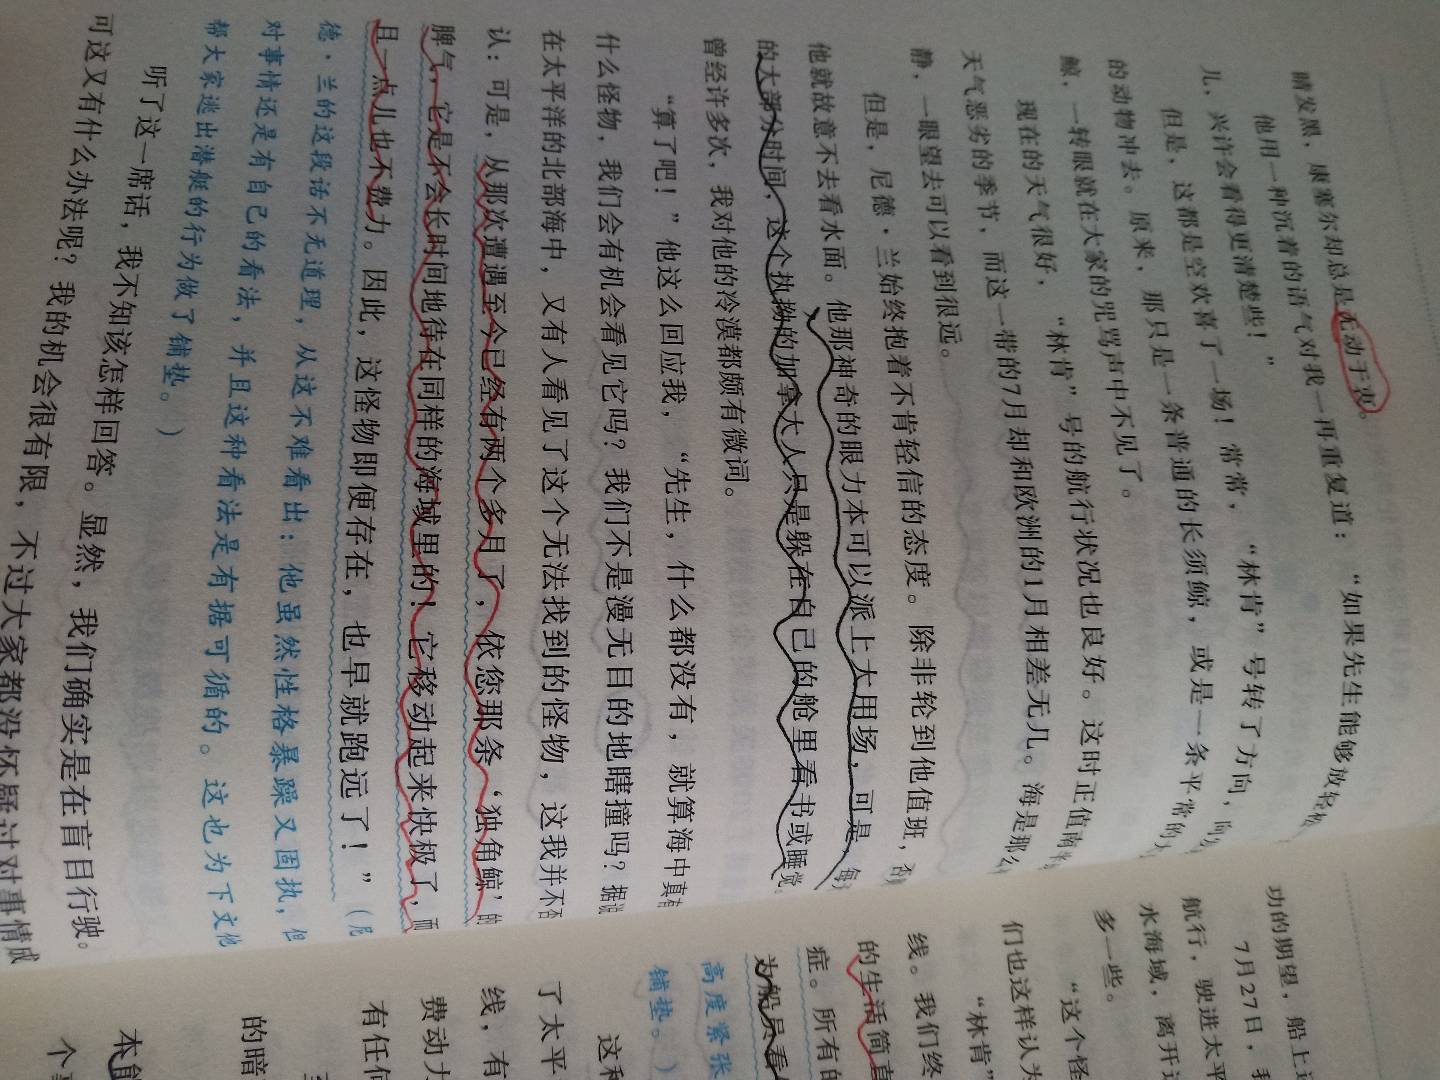 睛发黑，康塞尔却总是无动于衷。
他用一种沉着的语气对我一再重复道：“如果先生能够放轻松
儿，兴许会看得更清楚些！”
但是，这都是空欢喜了一场！常常，“林肯”号转了方向，向
的动物冲去。原来，那只是一条普通的长须鲸，或是一条平常的
鲸，一转眼就在大家的咒骂声中不见了。
现在的天气很好，“林肯”号的航行状况也良好。这时正值南半
天气恶劣的季节，而这一带的7月却和欧洲的1月相差无几。海是那么
静，一眼望去可以看到很远。
但是，尼德·兰始终抱着不肯轻信的态度。除非轮到他值班，否
他就故意不去看水面。他那神奇的眼力本可以派上大用场，可是，每
的大部分时间，这个执拗的加拿大人只是躲在自己的舱里看书或睡觉。
曾经许多次，我对他的冷漠都颇有微词。
“算了吧！”他这么回应我，“先生，什么都没有，就算海中真有
什么怪物，我们会有机会看见它吗？我们不是漫无目的地瞎撞吗？据说
在太平洋的北部海中，又有人看见了这个无法找到的怪物，这我并不否
认：可是，从那次遭遇至今已经有两个多月了，依您那条‘独角鲸’的
脾气，它是不会长时间地待在同样的海域里的！它移动起来快极了，而
且一点儿也不费力。因此，这怪物即便存在，也早就跑远了！”（尼
德·兰的这段话不无道理，从这不难看出：他虽然性格暴躁又固执，但
对事情还是有自己的看法，并且这种看法是有据可循的。这也为下文他
帮大家逃出潜艇的行为做了铺垫。）
听了这一席话，我不知该怎样回答。显然，我们确实是在盲目行驶。
可这又有什么办法呢？我的机会很有限，不过大家都没怀疑过对事情成
功的期望，船上
7月27日，
航行，驶进太平
水海域，离开
多一些。
“这个怪
们也这样认为
“林肯”
线。我们终
的生活简直
症。所有的
为船员看
高度紧张
铺垫。）
这种
了太平
线，有
费动力
有任何
的暗
本能
个